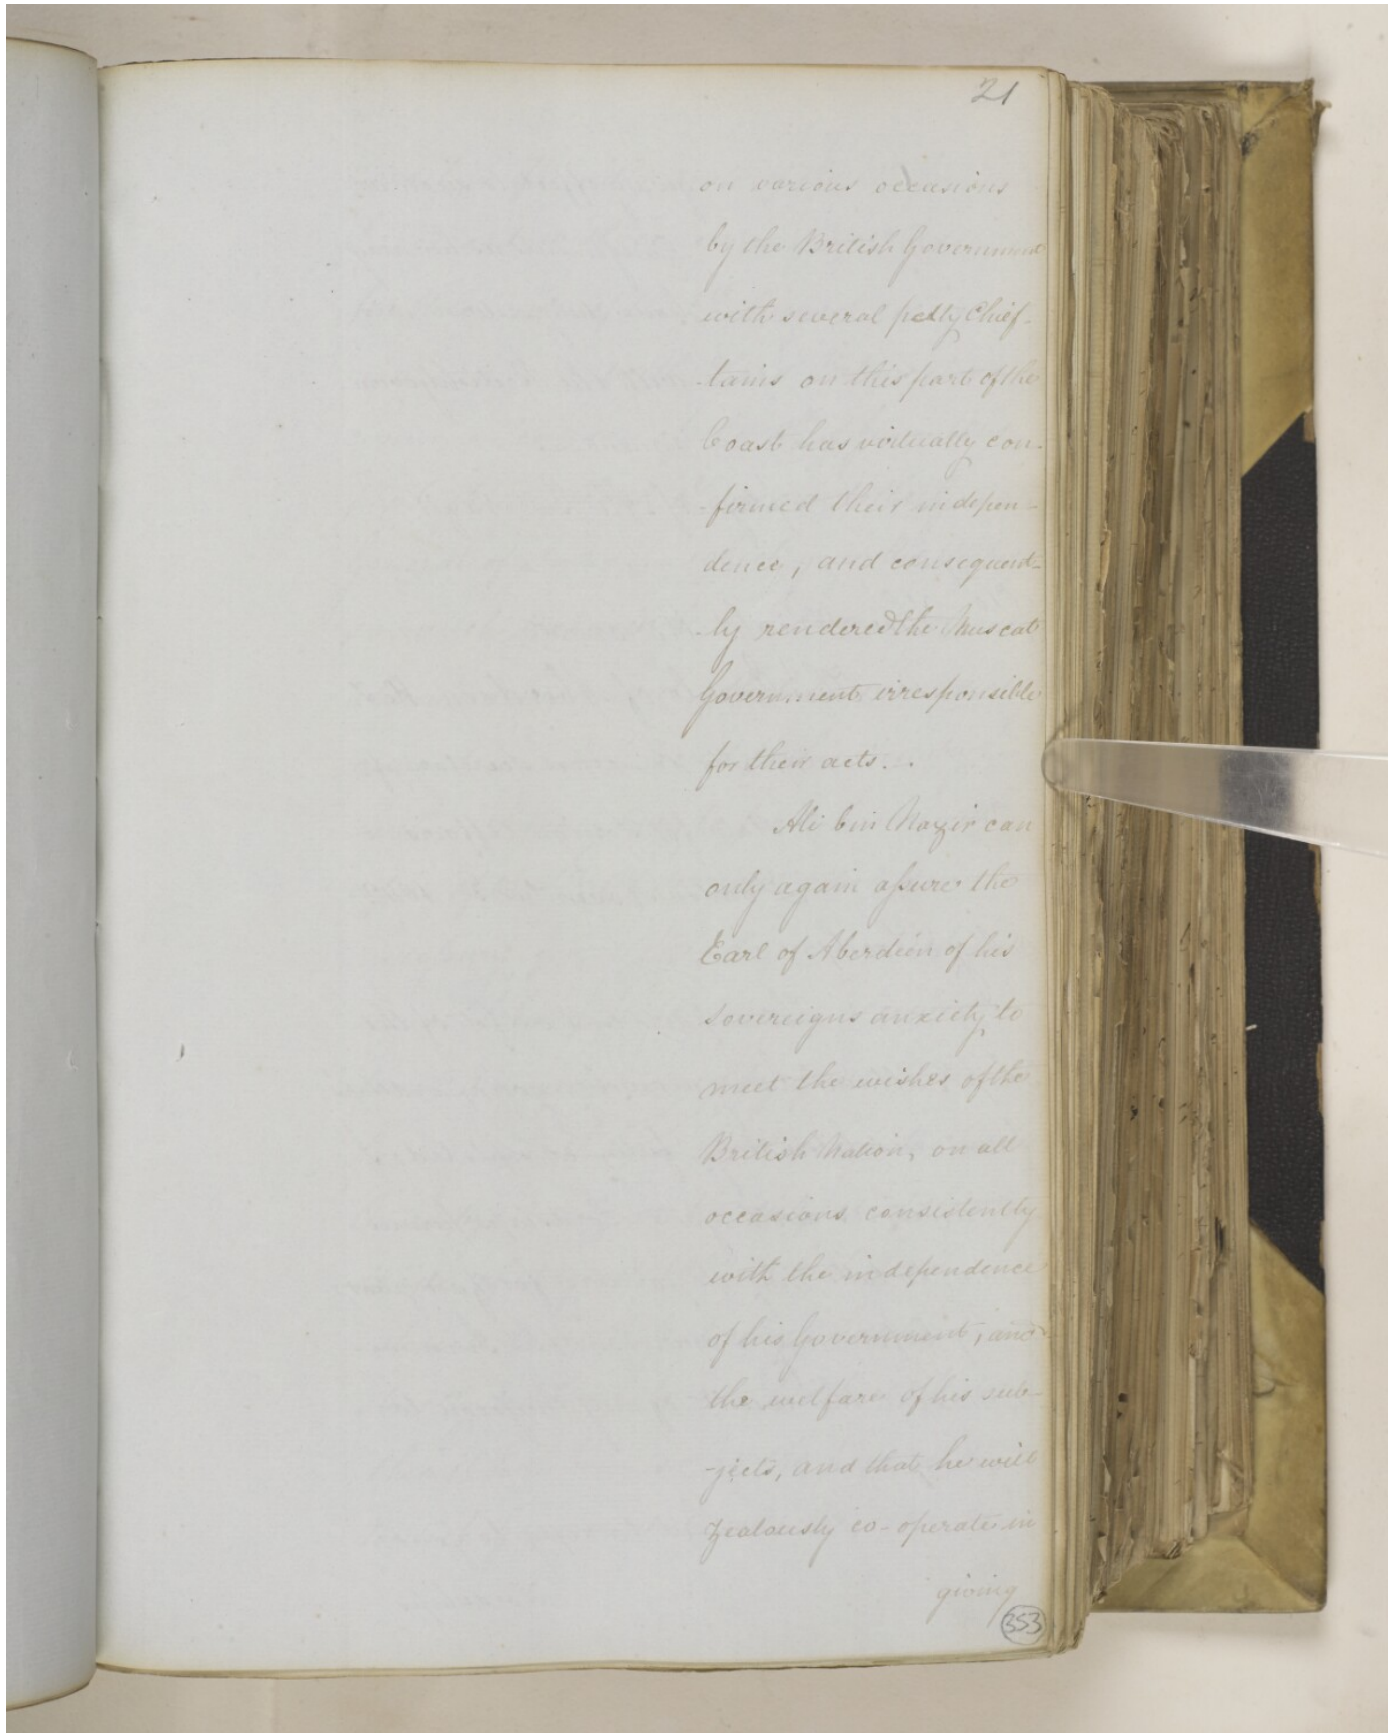 21
on various occasions
by the British Government
with several petty Chief-
-tains on this part of the
Coast has virtually con-
-firmed their indepen-
dence, and consequent-
-ly rendered the Muscat
Government irresponsible
for their acts. .
Ali bin Nazir can
only again assure the
Earl of Aberdeen of his
sovereigns anxiety to
meet the wishes of the
British Nation, on all
occasions consistently
with the independence
of his Government, and
the welfare of his sub-
-jects, and that he will
zealously co-operate in
giving
353